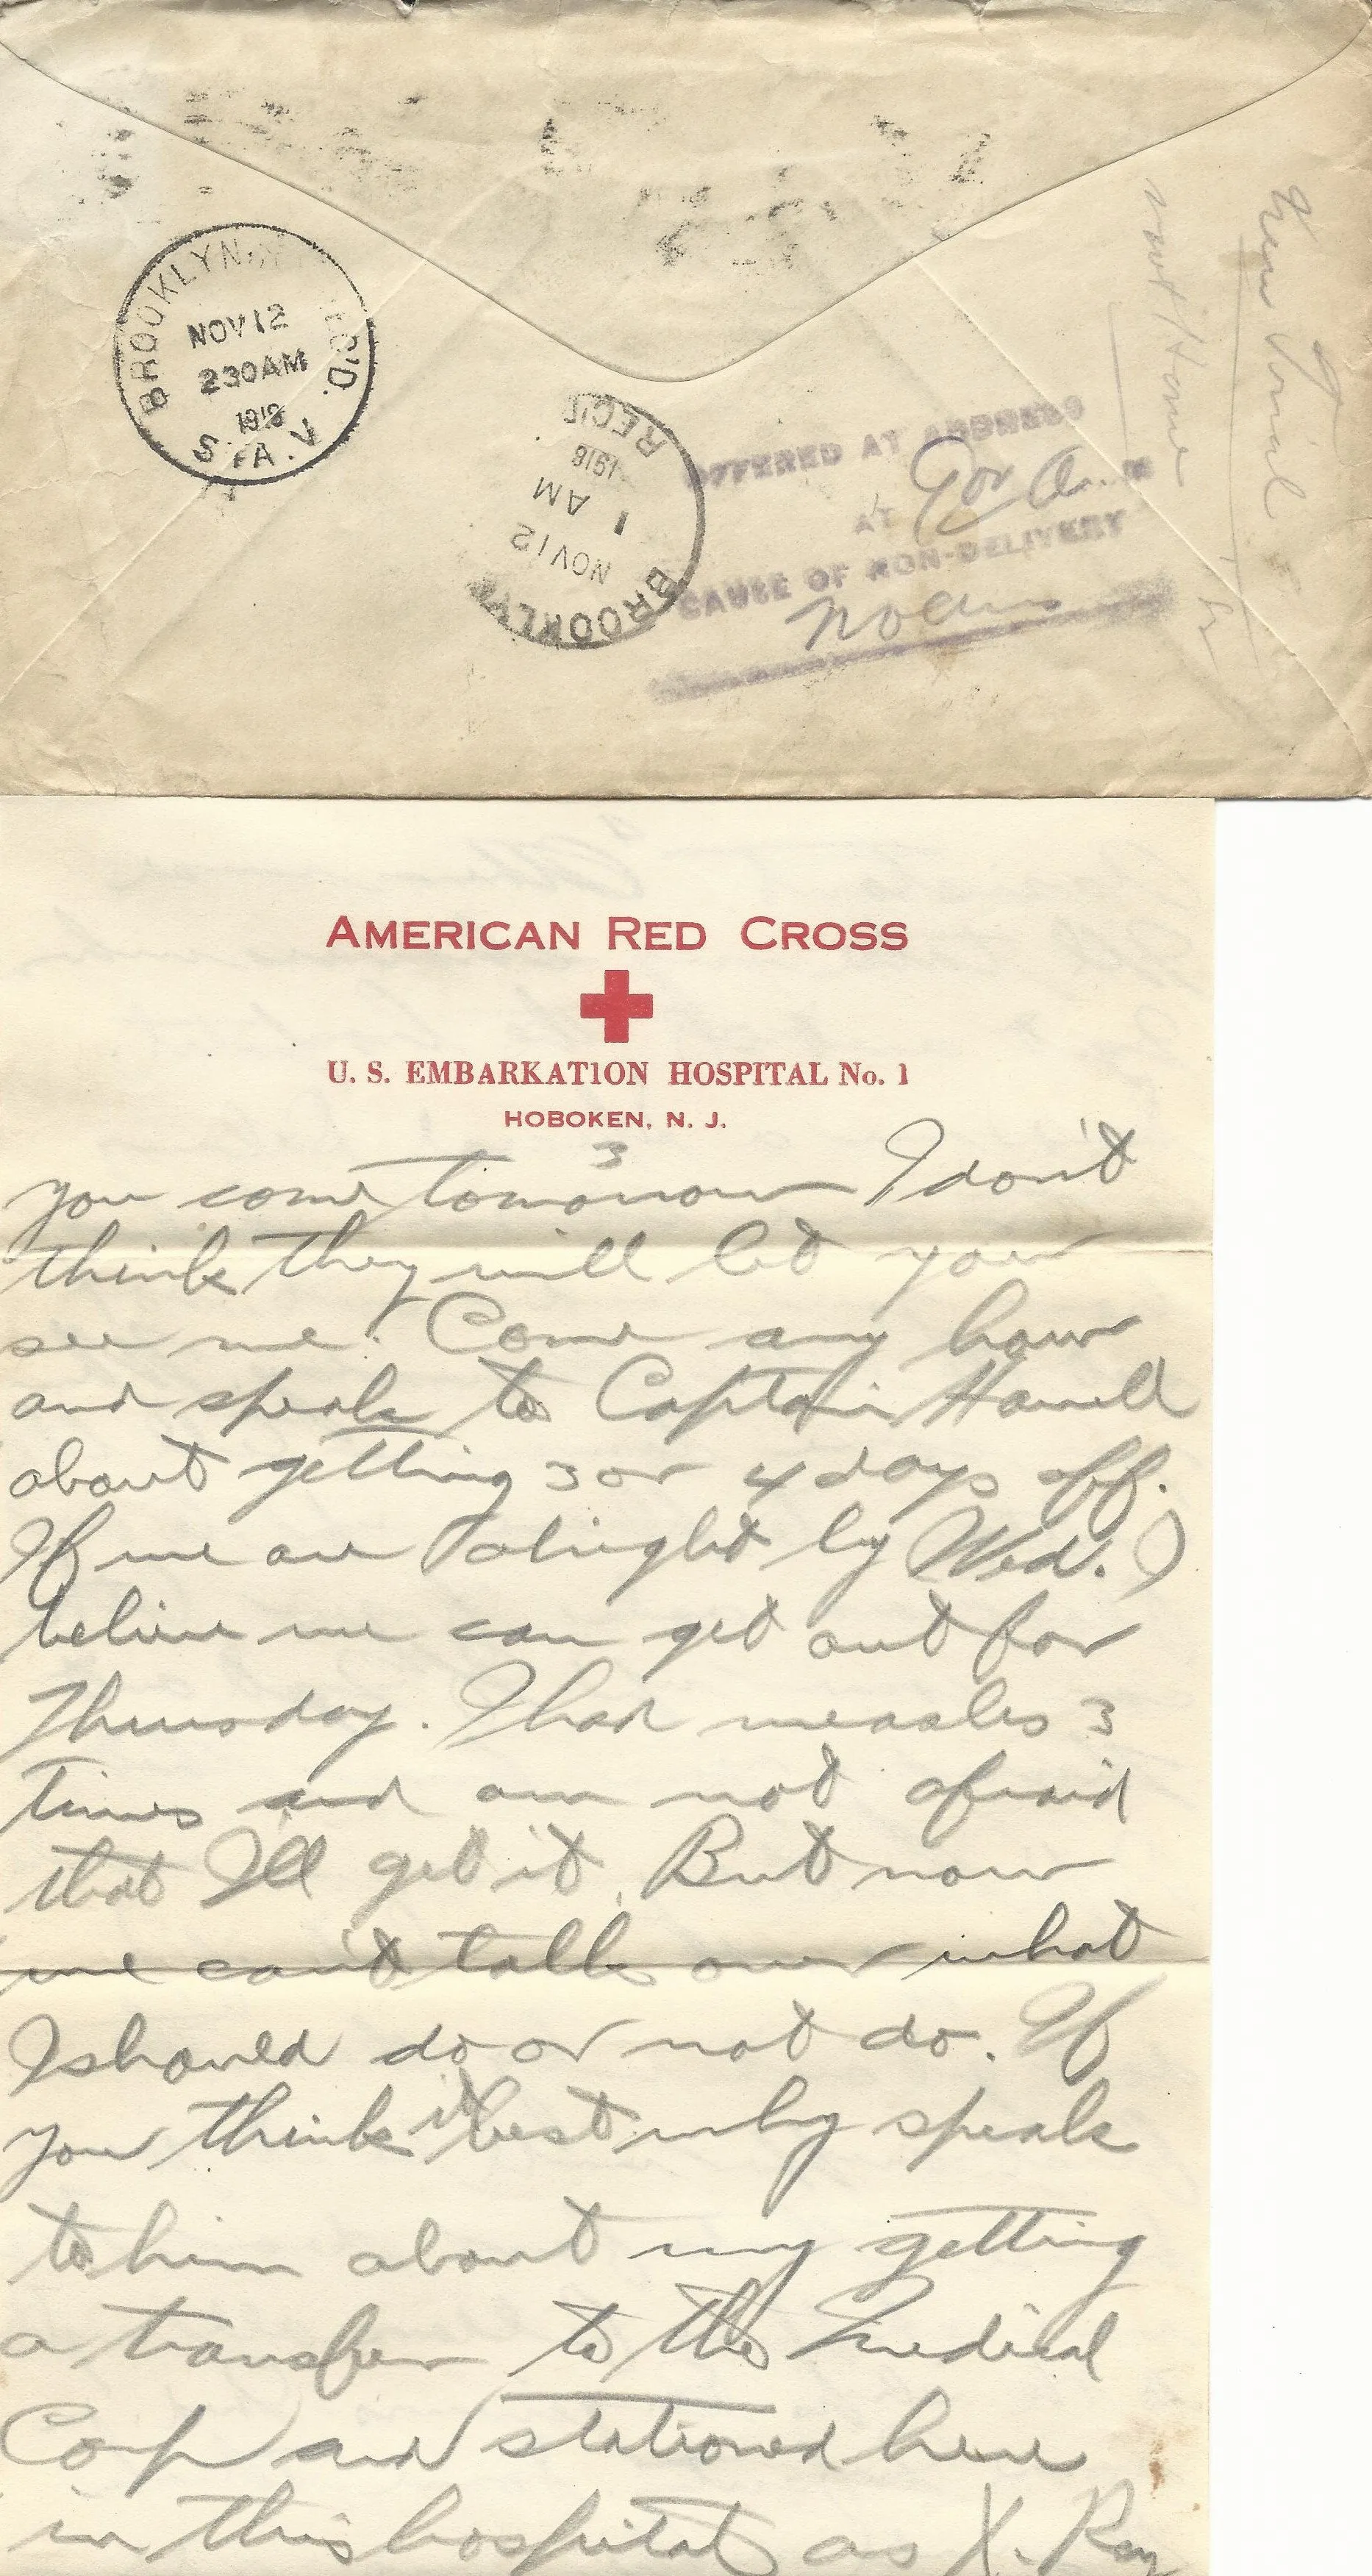 BROOKLYN, N.Y. REC'D.
NOV 12
230AM
1918
S.TA. V
BROOKLYN
NOV 12
1 AM
1918
REC'D
OFFERED AT ADDRESS
AT
CAUSE OF NON-DELIVERY
not Home
AMERICAN RED CROSS
U. S. EMBARKATION HOSPITAL No. 1
HOBOKEN, N. J.
3
you come tomorrow I don't
think they will let you
see me. Come any how
and speak to Captain
about getting 3 or 4 days off.
If we are alright by Wed. I
believe we can get out for
Thursday. I had measles 3
times and am not afraid
that I'll get it. But now
we can't talk over what
I should do or not do. If
you think it best why speak
to him about my getting
a transfer to the Medical
Corp and stationed here
in this hospital as X. Ray